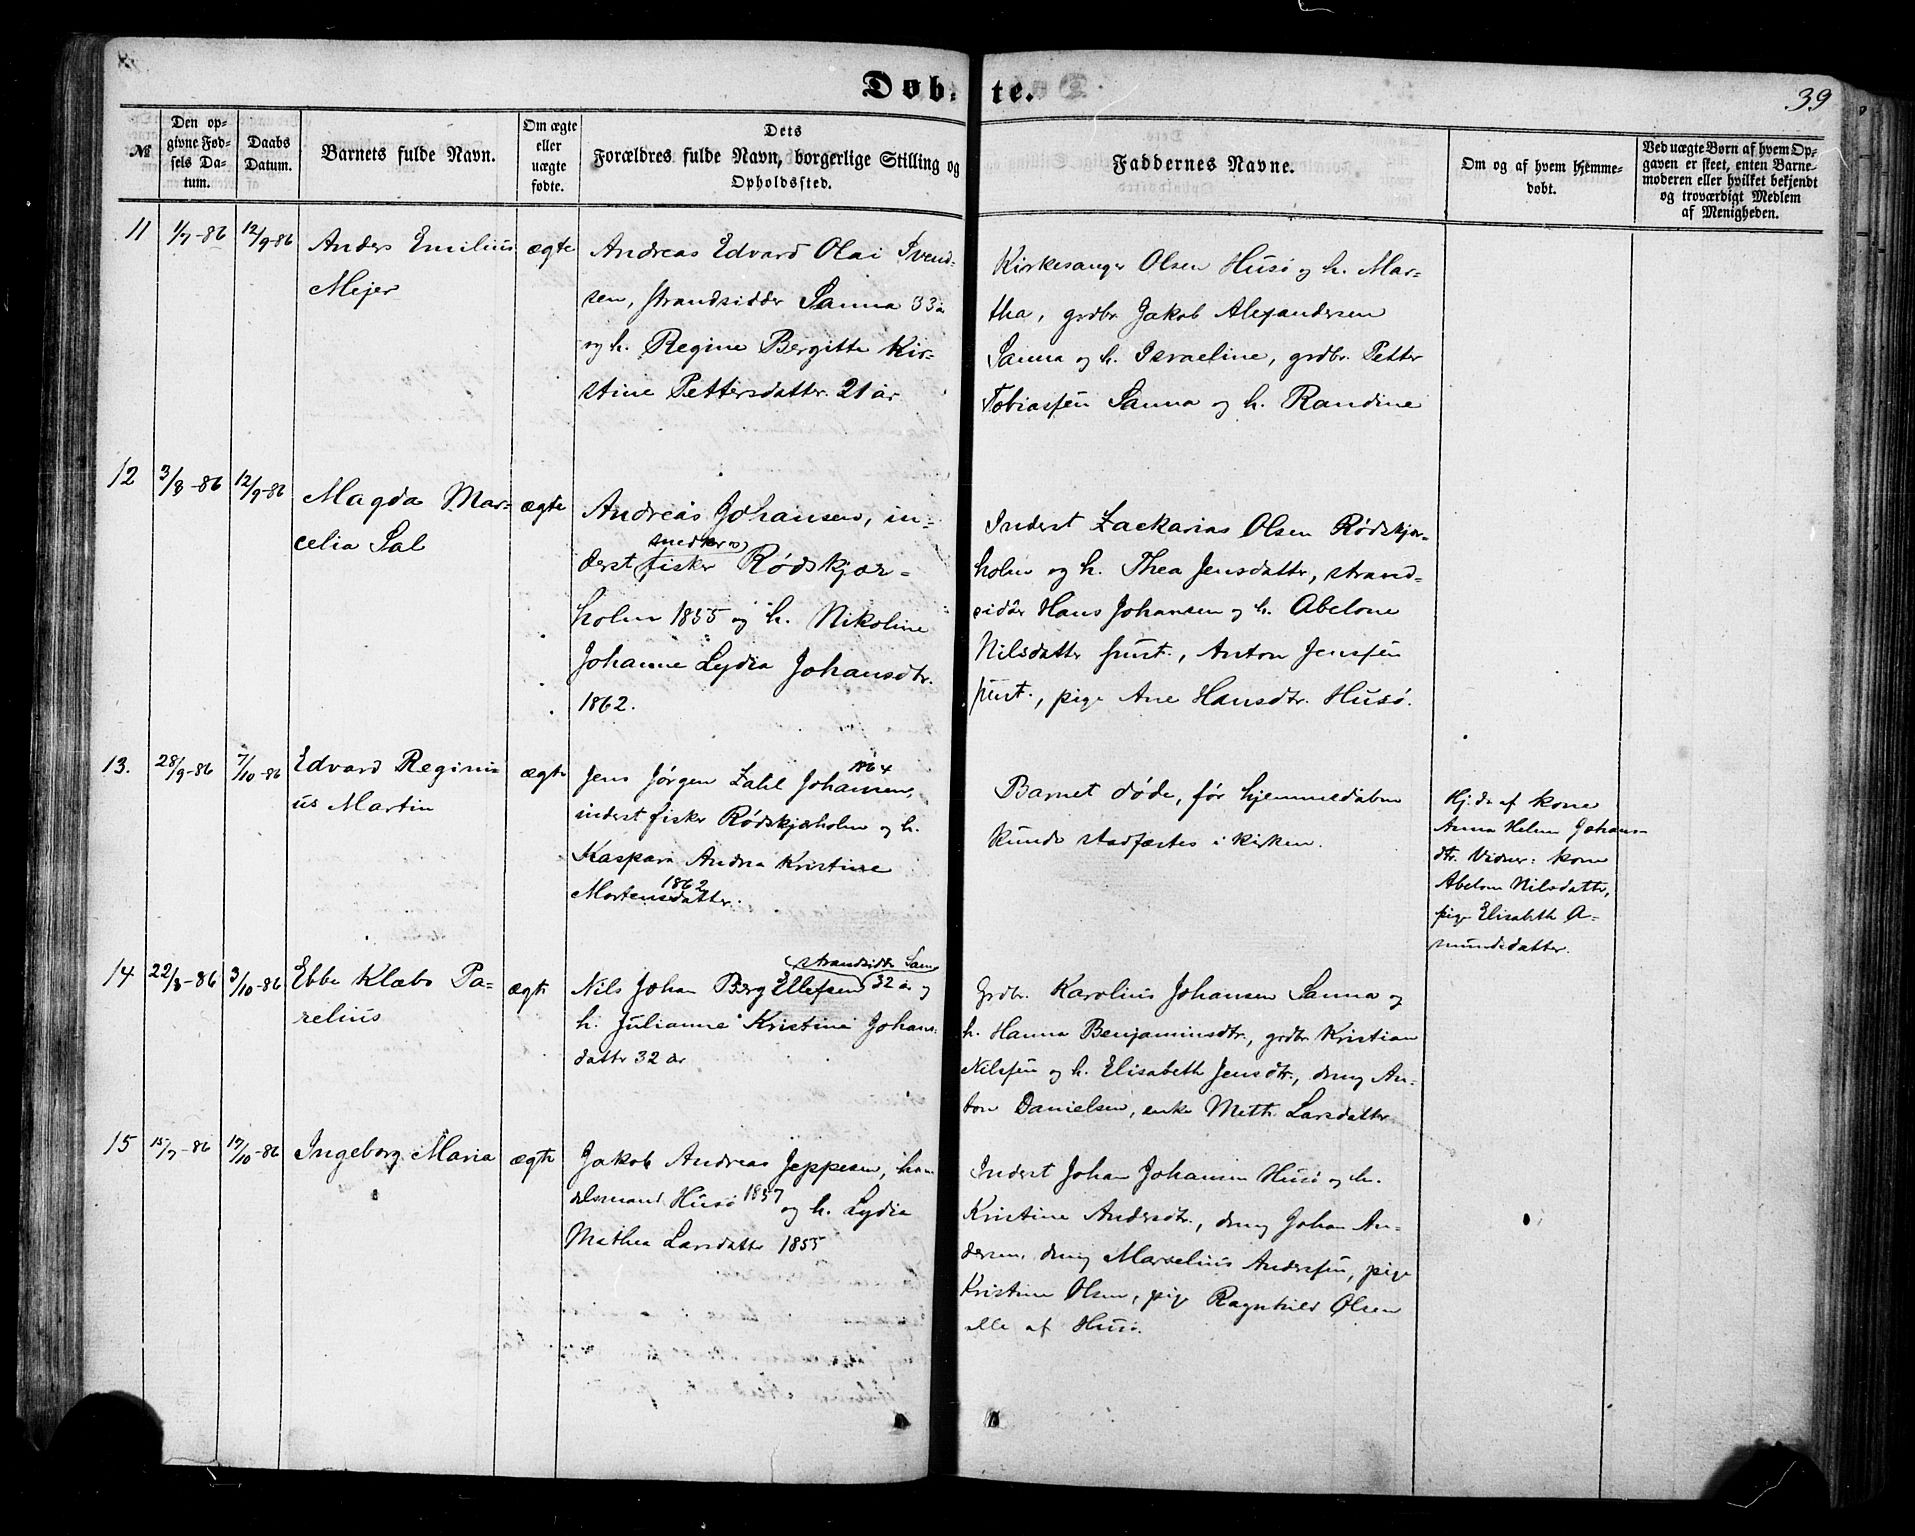 Døbte.
39
№
Den opgivne Fødsels Datum.
Daabs Datum.
Barnets fulde Navn.
Om ægte eller uægte fødte.
Dets Forældres fulde Navn, borgerlige Stilling og Opholdssted.
Faddernes Navne.
Om og af hvem hjemmedøbt.
Ved uægte Børn af hvem Opgaven er skeet, enten Barnemoderen eller hvilket bekjendt og troværdigt Medlem af Menigheden.
11
1/7-86
12/9-86
Anders Emilius
Mejer
ægte
Andreas Edvard Olai Svend-
sen, strandsidder Sanna 33 år
og h. Regine Bergitte Kir-
stine Pettersdatter 21 år
Kirkesanger Olsen Husø og h. Mar-
tha, grdbr Jakob Alexandersen
Sanna og h. Israeline, grdbr. Petter
Tobiassen Sanna og h. Randine
12
3/8-86
12/9-86
Magda Mar-
celia Sal
ægte
Andreas Johansen, in-
derst fisker Rødskjær-
holm 1855 og h. Nikoline
Johanne Lydia Johansdtr.
1862.
Inderst Zackarias Olsen Rødskjær-
holm og h. Thea Jensdatter, strand-
sidder Hans Johansen og h. Abelone
Nilsdatter smst., Anton Jenssen
smst., pige Ane Hansdtr. Husø.
13.
28/9-86
7/10-86
Edvard Regini-
us Martin
ægte
1864
Jens Jørgen Zahl Johansen,
inderst fisker Rødskjærholm og h.
Kaspara Andrea Kristine
1862
Mortensdatter.
Barnet døde, før hjemmedåben
kunde stadfæstes i kirken.
Hj.dr af kone
Anna Helene Johans-
dtr. Vidner: kone
Abelone Nilsdatter,
pige Elisabeth A-
mundsdatter.
14
22/8-86
3/10-86
Ebbe Klæbo Pa-
relius
ægte
strandsidder Sanna
Nils Johan Berg Ellefsen 32 år og
h. Julianne Kristine Johans-
datter 32 år
Grdbr. Karolius Johansen Sanna og
h. Hanna Benjaminsdtr., grdbr Kristian
Nilssen og h. Elisabeth Jensdtr., dreng An-
ton Danielsen, enke Mette Larsdatter
15
15/7-86
17/10-86
Ingeborg Maria
ægte
Jakob Andreas Jeppesen, han-
delsmand Husø 1857 og h. Lydia
Mathea Larsdatter 1855
Inderst Johan Johansen Husø og h.
Kristine Andersdtr., dreng Johan An-
dersen, dreng Marselius Anderssen, pige
Kristine Olsen, pige Ragnhild Olsen
alle af Husø.